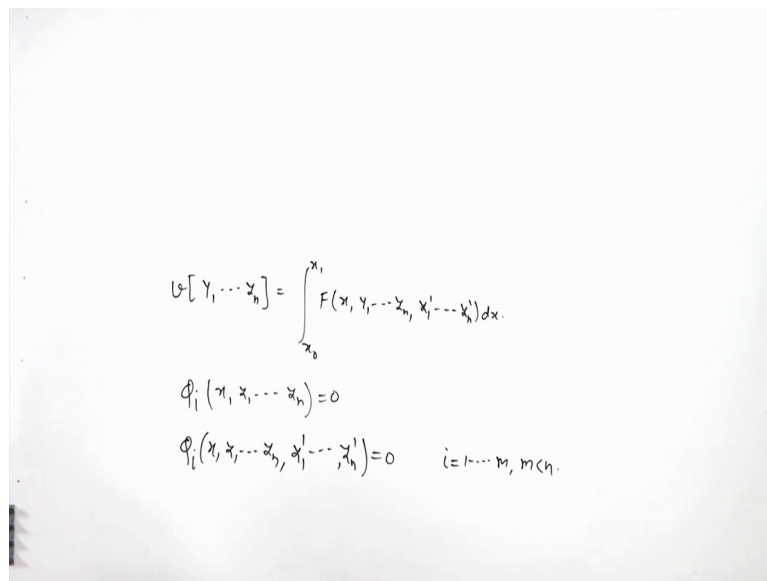 v[y₁, ⋯ yₙ] = ∫_{x₀}^{x₁} F(x, y₁, ⋯ yₙ, y₁' ⋯ yₙ') dx.
φᵢ(x, y₁ ⋯ yₙ) = 0
φᵢ(x, y₁ ⋯ yₙ, y₁' ⋯, yₙ') = 0 i = 1 ⋯ m, m < n.